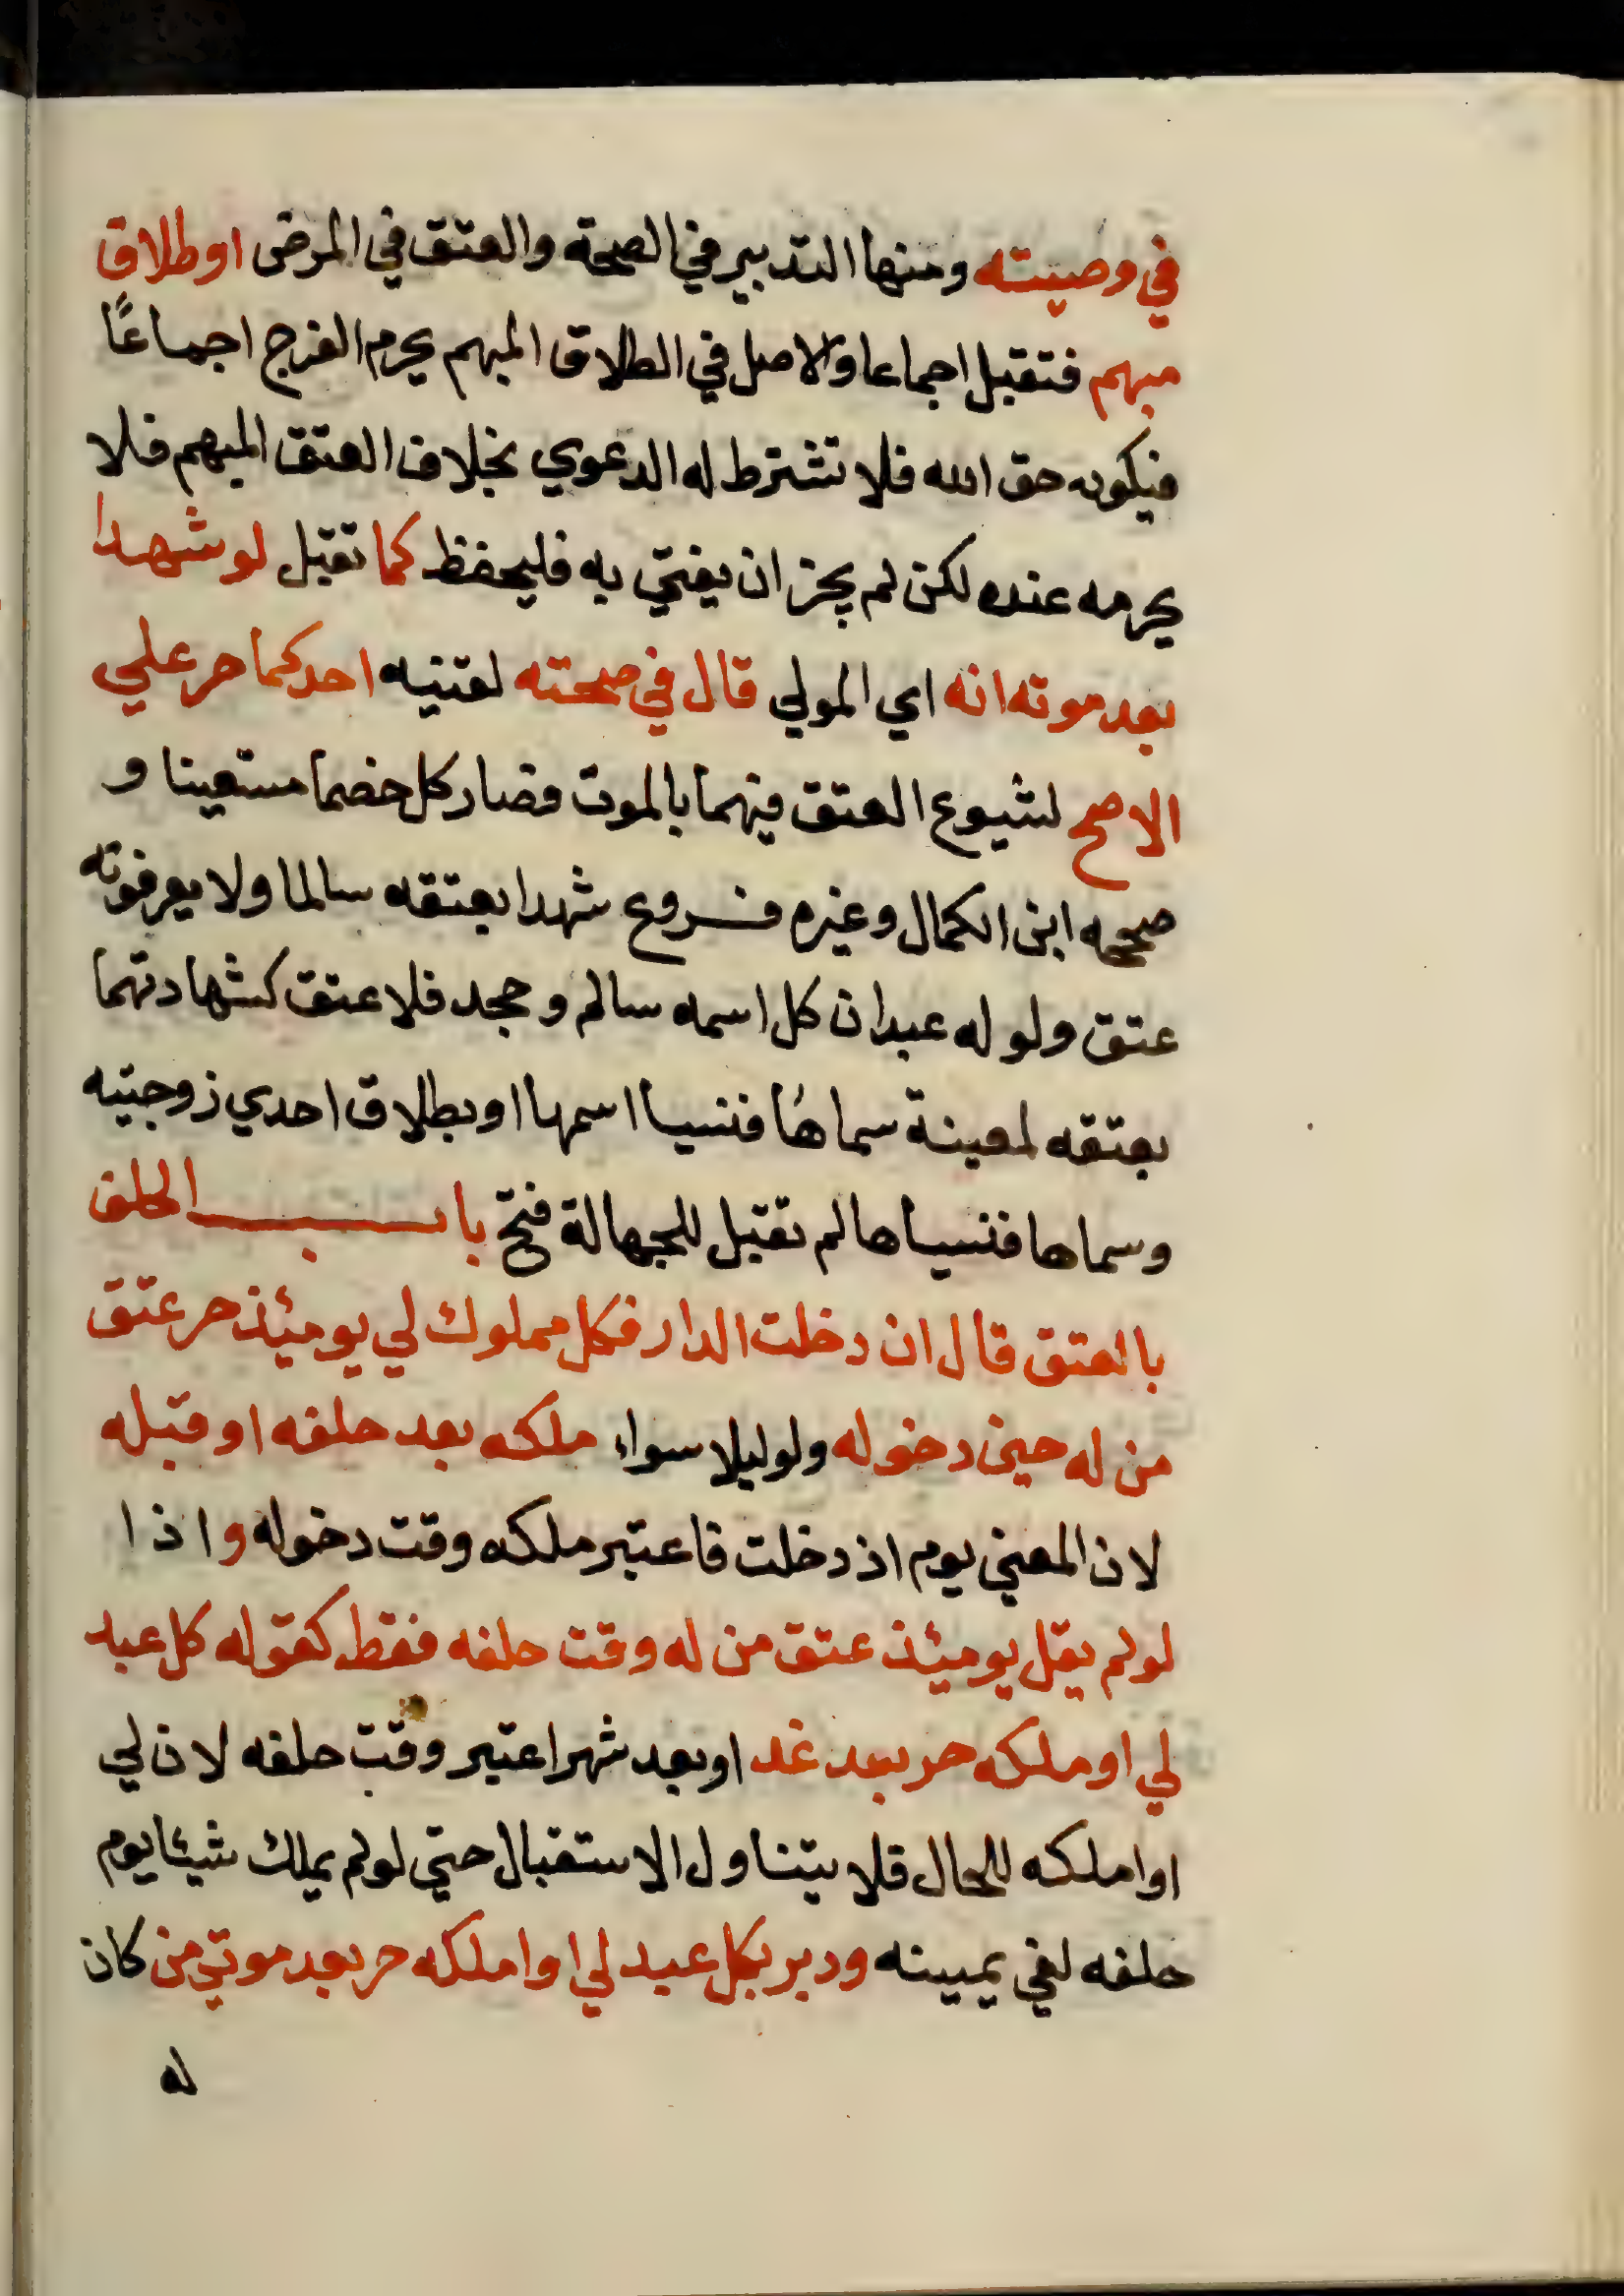 في وصيته ومنها التدبير في الصحة والعتق في المرض او طلاق
مبهم فتقبل اجماعا والاصل في الطلاق المبهم يحرم الفرج اجماعًا
فيكون حق الله فلا تشترط له الدعوي بخلاف العتق المبهم فلا
يحرمه عنده لكن لم يجز ان يفتي به فليحفظ كما تقبل لو شهدا
بعد موته انه اي المولي قال في صحته لقنيه احدكما حر علي
الاصح لشيوع العتق فيهما بالموت فصار كل خصما متعينا و
صححه ابن الكمال وغيره فروع شهدا بعتقه سالما ولا يعرفونه
عتق ولو له عبدان كل اسمه سالم وجحد فلا عتق كشهادتهما
بعتقه لمعينة سماها فنسيا اسمها او بطلاق احدي زوجتيه
وسماها فنسياها لم تقبل للجهالة فتح باب الحلف
بالعتق قال ان دخلت الدار فكل مملوك لي يومئذ حر عتق
من له حين دخوله ولو ليلا سواء ملكه بعد حلفه او قبله
لان المعني يوم اذ دخلت فاعتبر ملكه وقت دخوله واذا
لو لم يقل يومئذ عتق من له وقت حلفه فقط كقوله كل عبد
لي او ملكه حر بعد غد او بعد شهر اعتبر وقت حلفه لان لي
او املكه للحال فلا يتناول الاستقبال حتي لو لم يملك شيئا يوم
حلفه لغي يمينه ودبر بكل عبد لي او املكه حر بعد موتي من كان
له